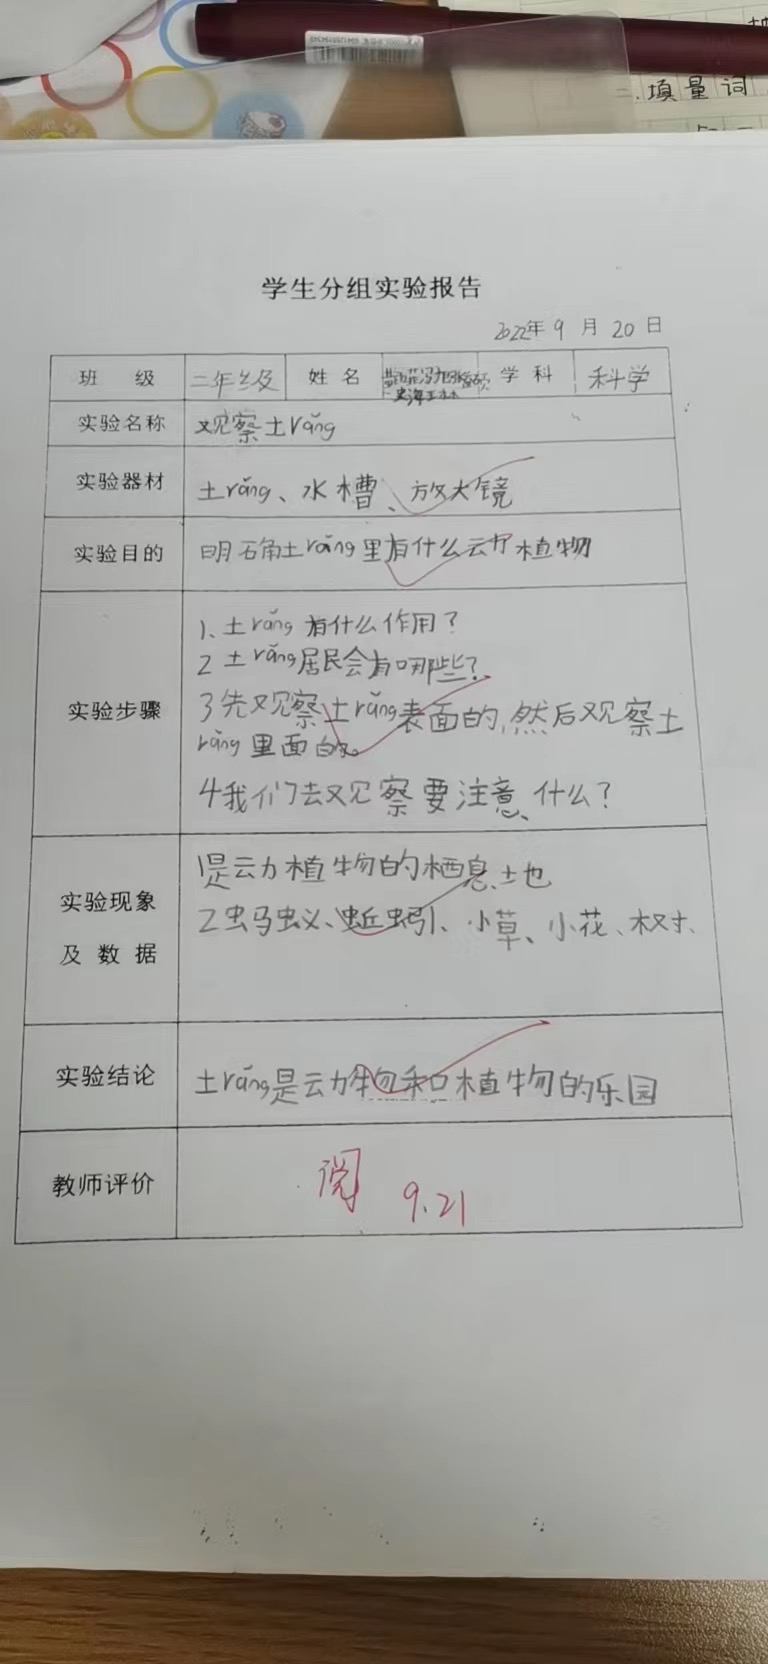 填量词
学生分组实验报告
2022年9月20日
班 级 二年级 姓名 学科 科学
实验名称 观察土rǎng
实验器材 土rǎng、水槽、放大镜
实验目的 明确土rǎng里有什么动植物
实验步骤
1、土rǎng有什么作用?
2 土rǎng居民会有哪些?
3先观察土rǎng表面的,然后观察土
rǎng里面的。
4我们去观察要注意什么?
实验现象
及数据
1是动植物的栖息土也
2蚂蚁、蚯蚓、小草、小花、树、
实验结论 土rǎng是动物和植物的乐园
教师评价 阅 9.21